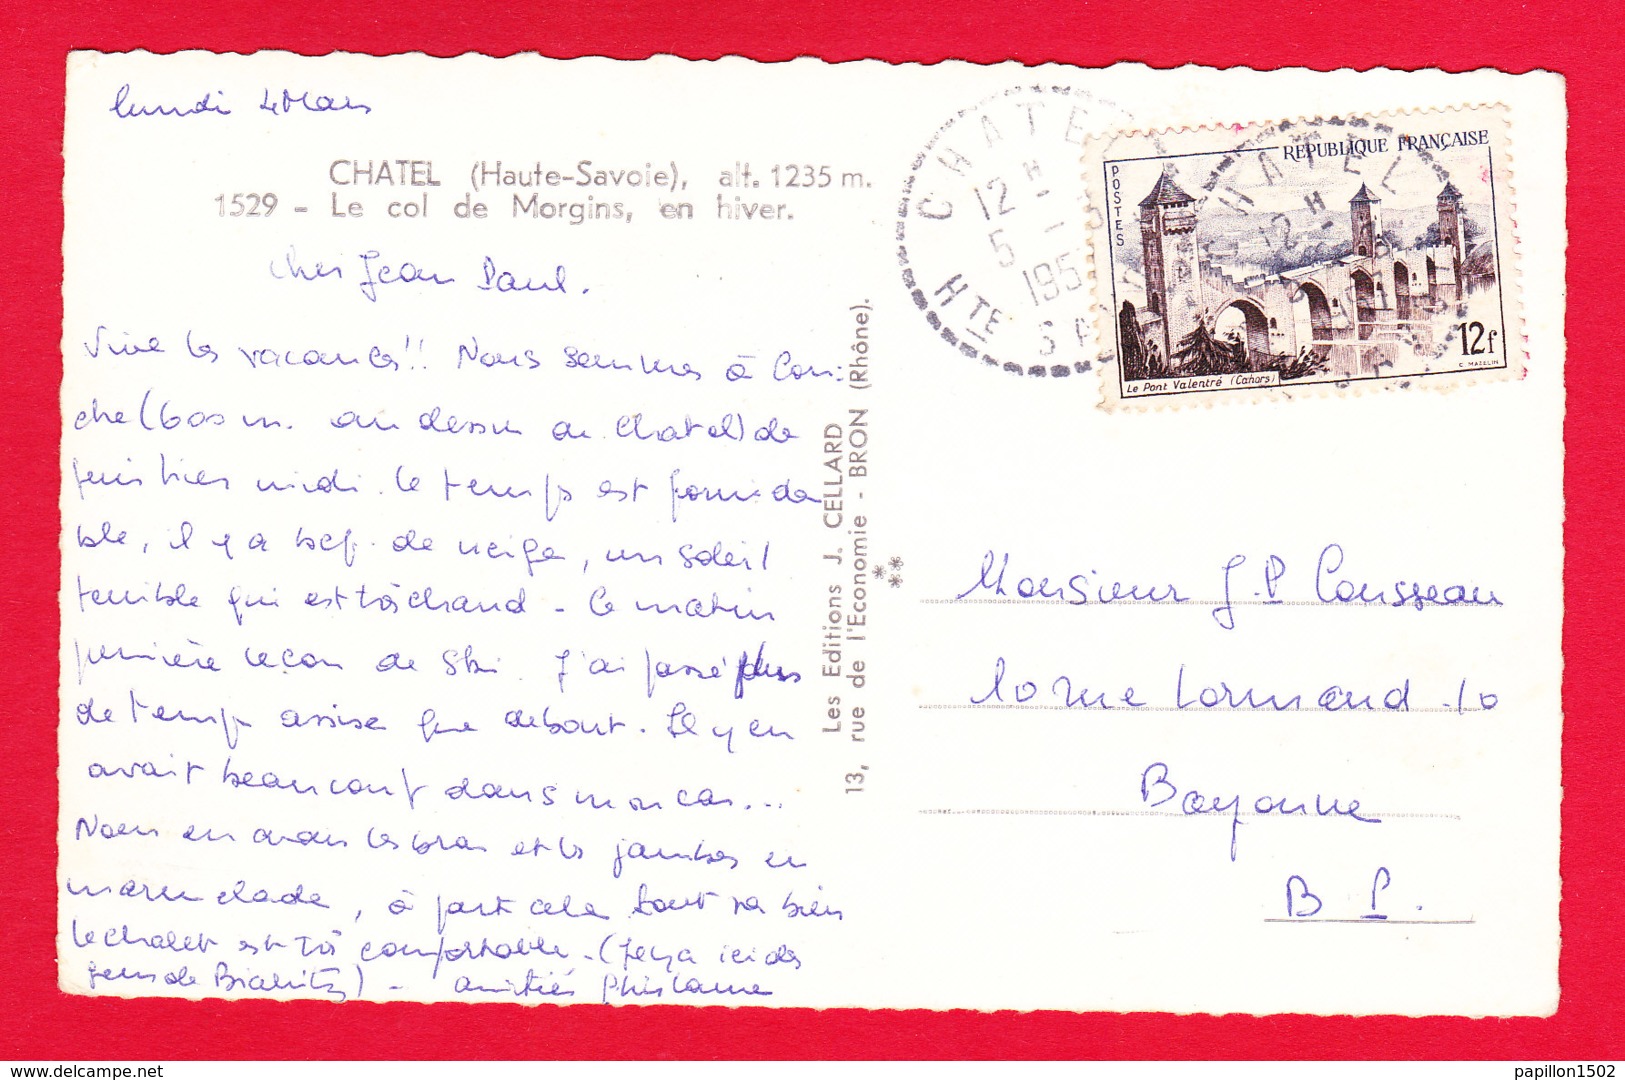 lundi 4 Mars
CHATEL (Haute-Savoie), alt. 1235 m.
1529 - Le col de Morgins, en hiver.
Cher Jean Paul.
Vive les vacances!! Nous sommes à Con-
che (600 m. au dessus de Chatel) de
puis hier midi. Le temps est formida
ble, il y a bcp. de neige, un soleil
terrible qui est très chaud - Ce matin
première leçon de Ski. J'ai passé plus
de temps assise que debout. Il y en
avait beaucoup dans mon cas...
Nous en avons les bras et les jambes en
marmelade, à part cela tout va bien
le chalet est très confortable - (Il y a ici des
gens de Biarritz) - amitiés Ghislaine
Les Editions J. CELLARD
13, rue de l'Economie - BRON (Rhône).
CHATEL
12 H
5 - 3
195
HTE SAV
CHATEL
12 H
REPUBLIQUE FRANÇAISE
POSTES
12f
Le Pont Valentré (Cahors)
C. MAZELIN
Monsieur J.P Cousseau
10 rue Lormand. 10
Bayonne
B P.
delcampe.net
papillon1502